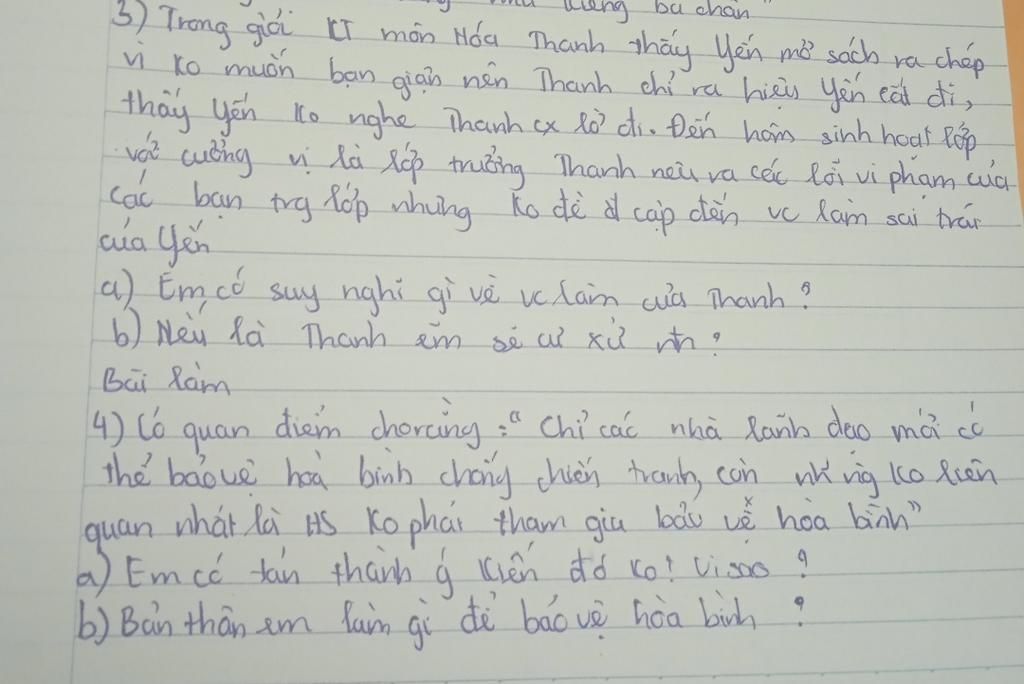 kiềng ba chân"
3) Trong giời KT môn Hóa Thanh thấy Yến mở sách ra chép
vì ko muốn bạn giận nên Thanh chỉ ra hiệu Yến cất đi,
thấy Yến ko nghe Thanh cx lờ đi. Đến hôm sinh hoạt lớp
với cương vị là lớp trưởng Thanh nêu ra các lỗi vi phạm của
các bạn trg lớp nhưng ko đề cập đến vc làm sai trái
của Yến
a) Em có suy nghĩ gì về vc làm của Thanh?
b) Nếu là Thanh em sẽ cư xử ntn?
Bài làm
4) Có quan điểm cho rằng: "Chỉ các nhà lãnh đạo mới có
thể bảo vệ hoà bình chống chiến tranh, còn những ko liên
quan nhất là HS ko phải tham gia bảo vệ hòa bình"
a) Em có tán thành ý kiến đó ko? Vì sao?
b) Bản thân em làm gì để bảo vệ hòa bình?